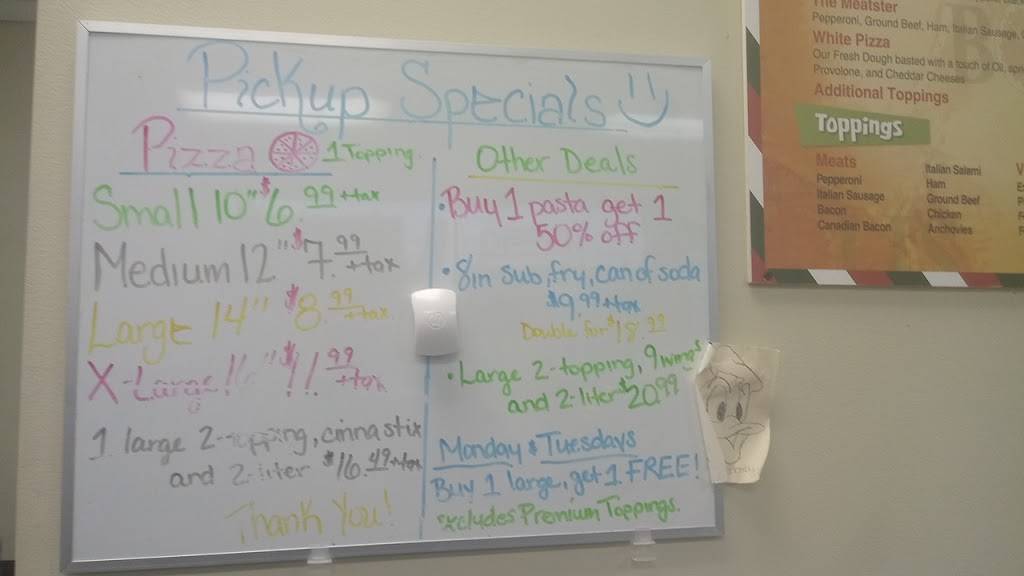 Pickup Specials
Pizza 1 Topping
Small 10" $6.99 +tax
Medium 12" $7.99 +tax
Large 14" $8.99 +tax
X-Large 16" $11.99 +tax
1 large 2-topping, cinnastix
and 2-liter $16.49 +tax
Thank You!
Other Deals
• Buy 1 pasta get 1
50% off
• 8in sub, fry, can of soda
$9.99 +tax
Double for $18.99
• Large 2-topping, 9 wings
and 2-liter $20.99
Monday & Tuesdays
Buy 1 large, get 1 FREE!
*xcludes Premium Toppings.
The Meatster
Pepperoni, Ground Beef, Ham, Italian Sausage,
White Pizza
Our Fresh Dough basted with a touch of Oil,
Provolone, and Cheddar Cheeses
Additional Toppings
Toppings
Meats
Pepperoni
Italian Sausage
Bacon
Canadian Bacon
Italian Salami
Ham
Ground Beef
Chicken
Anchovies